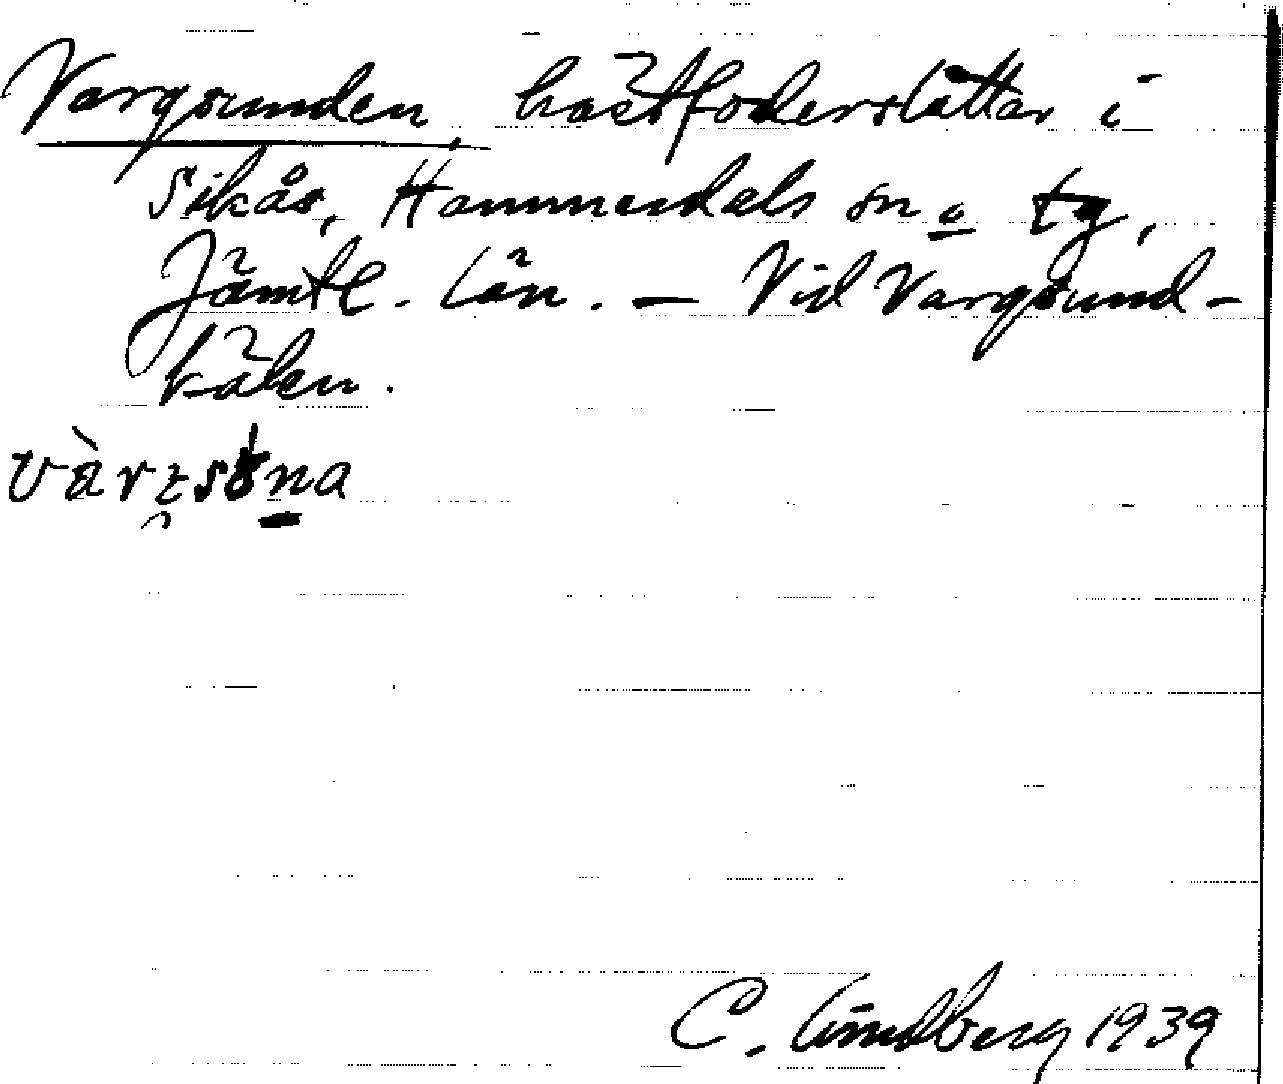 Vargsunden, hästfoderslåttar i
Sikås, Hammerdals sn o tg,
Jämtl. län. — Vid Vargsund-
kälen.
C. Lindberg 1939